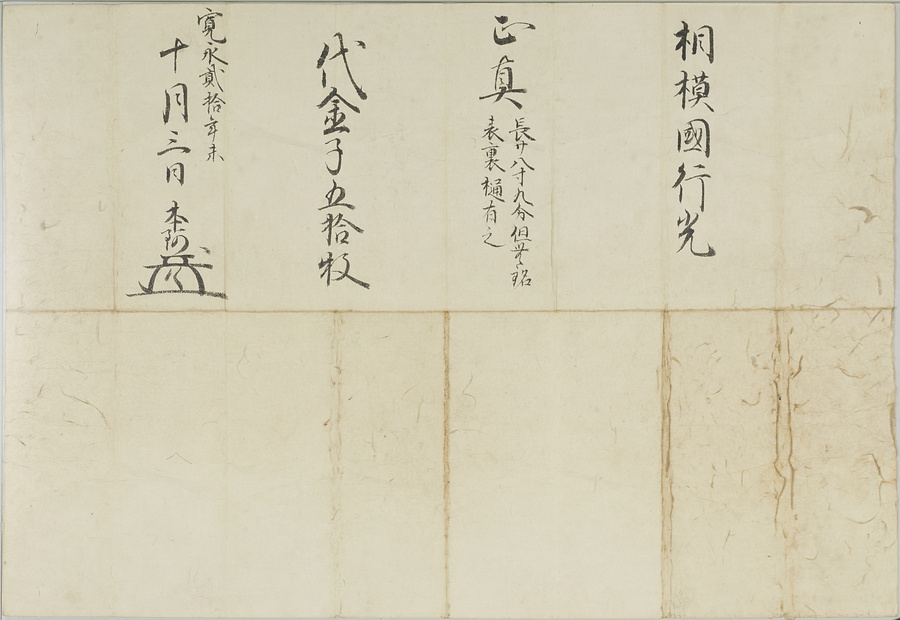 相模國行光
正真
長サ八寸九分但無銘
表裏樋有之
代金子五拾枚
寛永貳拾年未
十月三日 本阿